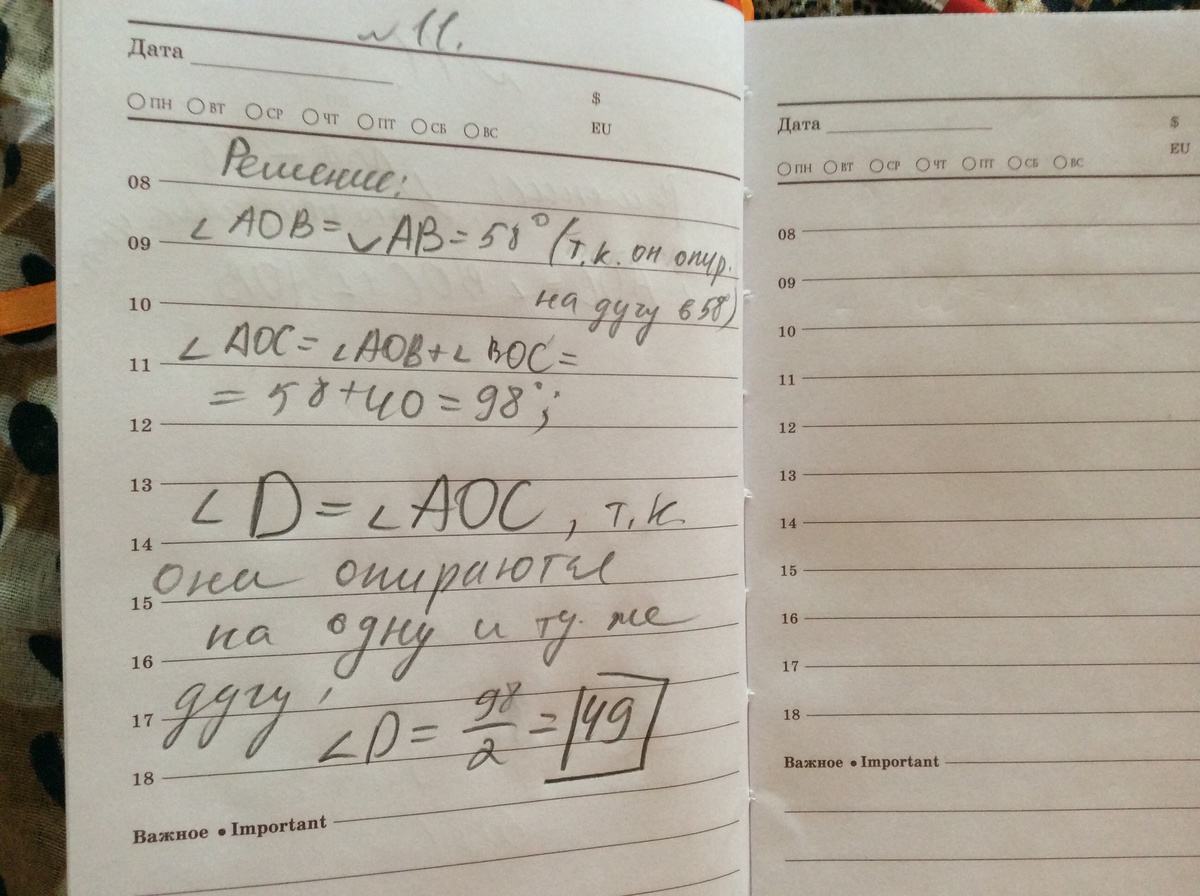 №11.
Дата
ПН ВТ СР ЧТ ПТ СБ ВС
$
EU
Решение:
08
∠AOB = ◡AB = 58° (т.к. он опир.
09
на дугу в 58)
10
∠AOC = ∠AOB + ∠BOC =
11
= 58 + 40 = 98°;
12
13
∠D = ∠AOC, т.к.
14
они опираются
15
на одну и ту же
16
дугу;
17
∠D = 98/2 = 49
18
Важное • Important
Дата
$
EU
ПН ВТ СР ЧТ ПТ СБ ВС
08
09
10
11
12
13
14
15
16
17
18
Важное • Important